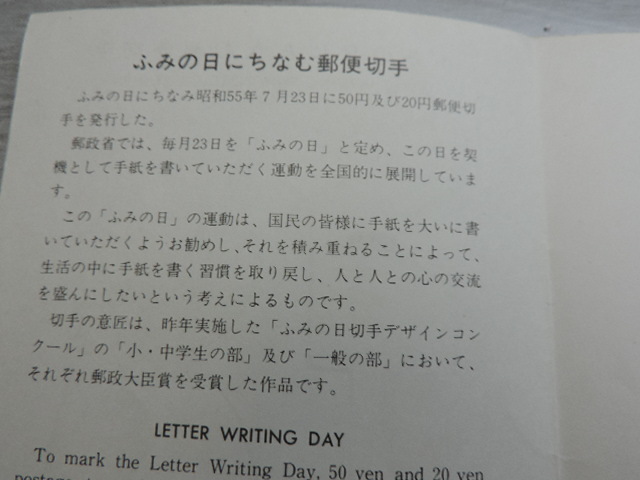 ふみの日にちなむ郵便切手
ふみの日にちなみ昭和55年7月23日に50円及び20円郵便切
手を発行した。
郵政省では、毎月23日を「ふみの日」と定め、この日を契
機として手紙を書いていただく運動を全国的に展開していま
す。
この「ふみの日」の運動は、国民の皆様に手紙を大いに書
いていただくようお勧めし、それを積み重ねることによって、
生活の中に手紙を書く習慣を取り戻し、人と人との心の交流
を盛んにしたいという考えによるものです。
切手の意匠は、昨年実施した「ふみの日切手デザインコン
クール」の「小・中学生の部」及び「一般の部」において、
それぞれ郵政大臣賞を受賞した作品です。
LETTER WRITING DAY
To mark the Letter Writing Day, 50 yen and 20 yen